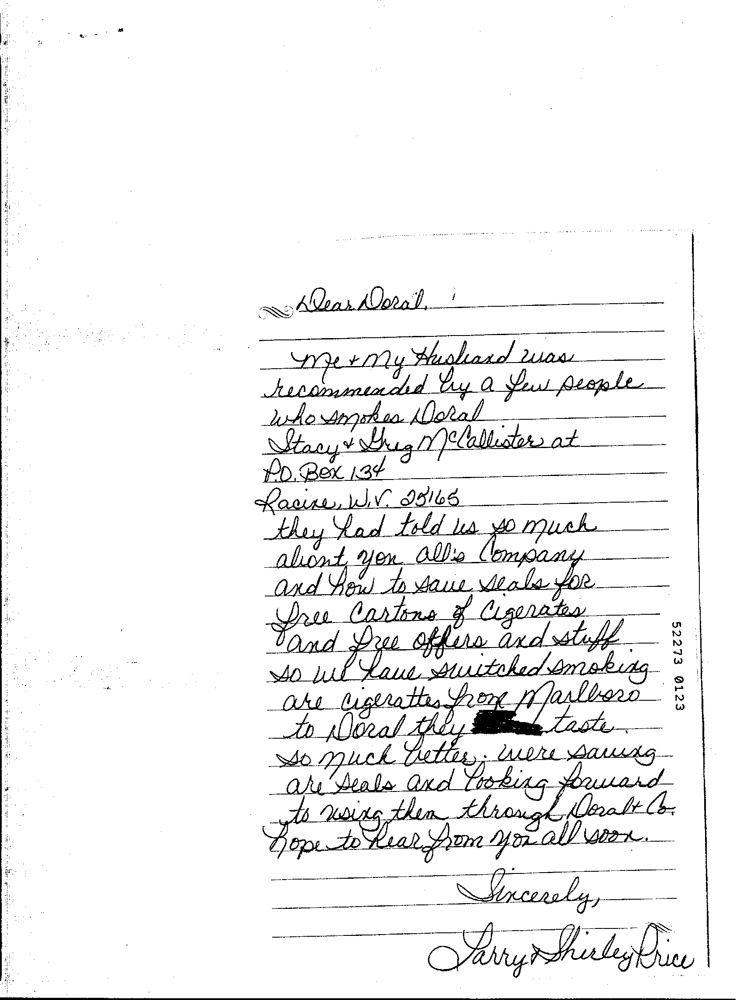 Dear Doral,
Me + My Husband was
recommended by a few people
who smokes Doral
Stacy & Greg McCallister at
P.O. Box 134
Racine, W.V. 25165
they had told us so much
about you all's Company
and how to save seals for
free Cartons of Cigerates
and free offers and stuff
so we have switched smoking
are cigerattes from Marlboro
to Doral they taste
so much better. were saving
are seals and looking forward
to using them through Doral & Co.
hope to hear from you all soon.
Sincerely,
Larry & Shirley Price
52273 0123